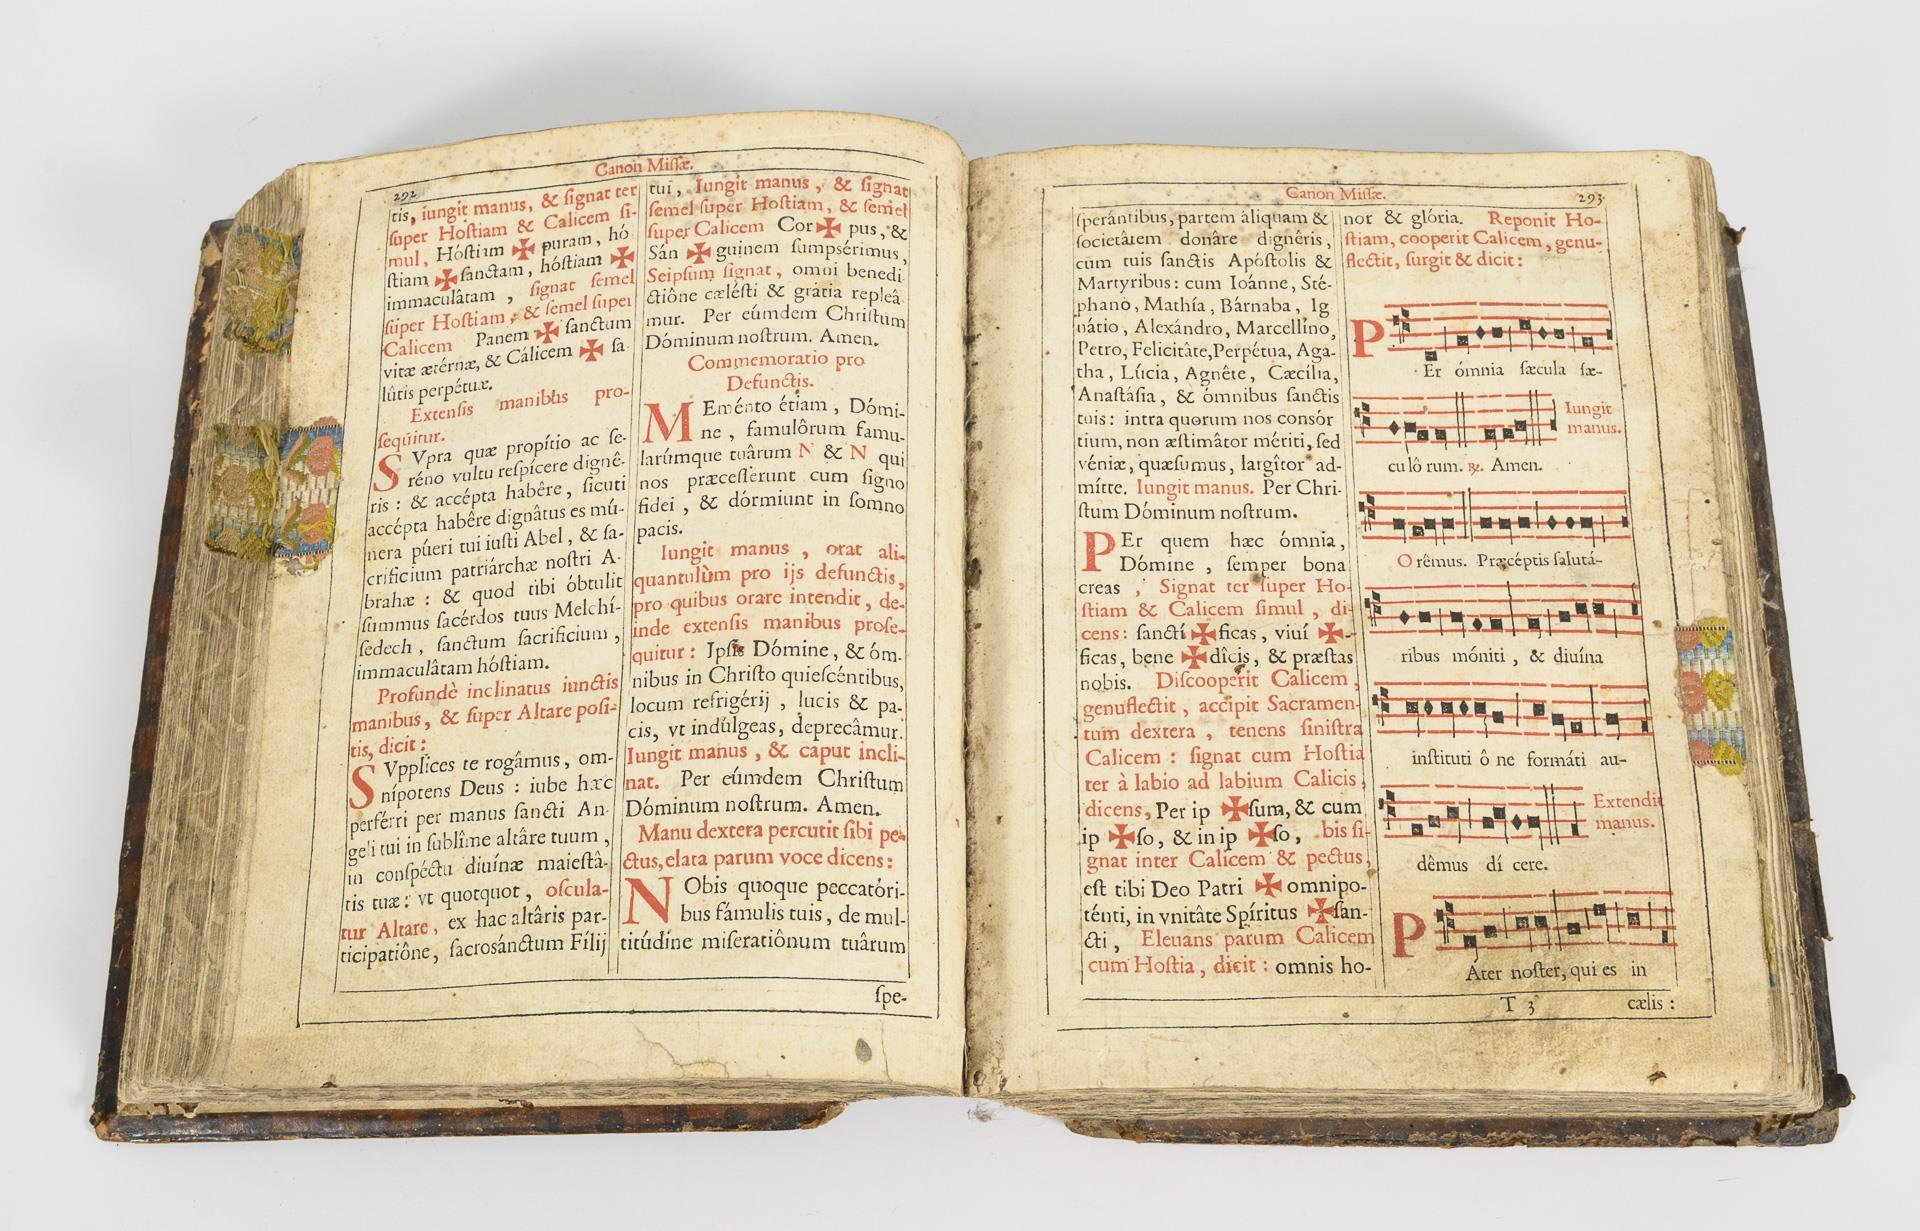 Canon Missæ.
292
tis, iungit manus, & signat ter
super Hostiam & Calicem si-
mul, Hóstiam ✠ puram, hó
stiam ✠ sanctam, hóstiam ✠
immaculâtam, signat semel
super Hostiam, & semel super
Calicem Panem ✠ sanctum
vitæ ætérnæ, & Cálicem ✠ sa-
lûtis perpétuæ.
Extensis manibus pro-
sequitur.
SVpra quæ propítio ac se-
réno vultu respícere dignê-
ris: & accépta habêre, sicuti
accépta habêre dignâtus es mú-
nera púeri tui iusti Abel, & sa-
crificium patriárchæ nostri A-
brahæ: & quod tibi óbtulit
summus sacérdos tuus Melchí-
sedech, sanctum sacrificium,
immaculâtam hóstiam.
Profundè inclinatus iunctis
manibus, & super Altare posi-
tis, dicit:
SVpplíces te rogâmus, om-
nípotens Deus: iube hæc
perférri per manus sancti An-
geli tui in sublîme altâre tuum,
in conspéctu diuínæ maiestâ-
tis tuæ: vt quotquot, oscula-
tur Altare, ex hac altâris par-
ticipatiône, sacrosánctum Fílij
tui, Iungit manus, & signat
semel super Hostiam, & semel
super Calicem Cor✠pus, &
Sán✠guinem sumpsérimus,
Seipsum signat, omni benedi
ctiône cælésti & gratia repleâ
mur. Per eúmdem Christum
Dóminum nostrum. Amen.
Commemoratio pro
Defunctis.
MEménto étiam, Dómi-
ne, famulôrum famu-
larúmque tuârum N & N qui
nos præcesserunt cum signo
fidei, & dórmiunt in somno
pacis.
Iungit manus, orat ali-
quantulùm pro ijs defunctis,
pro quibus orare intendit, de-
inde extensis manibus prose-
quitur: Ipsis Dómine, & óm-
nibus in Christo quiescéntibus,
locum refrigérij, lucis & pa-
cis, vt indúlgeas, deprecâmur.
Iungit manus, & caput incli-
nat. Per eúmdem Christum
Dóminum nostrum. Amen.
Manu dextera percutit sibi pe-
ctus, elata parum voce dicens:
NObis quoque peccatóri-
bus fámulis tuis, de mul-
titúdine miseratiônum tuârum
spe-
Canon Missæ.
293
sperántibus, partem àliquam &
societâtem donâre dignêris,
cum tuis sanctis Apóstolis &
Martyribus: cum Ioánne, Sté-
phano, Mathía, Bárnaba, Ig
nátio, Alexándro, Marcellíno,
Petro, Felicitâte, Perpétua, Aga-
tha, Lúcia, Agnête, Cæcília,
Anastásia, & ómnibus sanctis
tuis: intra quorum nos consór
tium, non æstimâtor mériti, sed
véniæ, quæsumus, largîtor ad-
mítte. Iungit manus. Per Chri-
stum Dóminum nostrum.
PEr quem hæc ómnia,
Dómine, semper bona
creas, Signat ter super Ho-
stiam & Calicem simul, di-
cens: sanctí✠ficas, viuí✠-
ficas, bene✠dîcis, & præstas
nobis. Discooperit Calicem,
genuflectit, accipit Sacramen-
tum dextera, tenens sinistra
Calicem: signat cum Hostia
ter à labio ad labium Calicis,
dicens, Per ip✠sum, & cum
ip✠so, & in ip✠so, bis si-
gnat inter Calicem & pectus,
est tibi Deo Patri ✠ omnipo-
ténti, in vnitâte Spíritus ✠san-
cti, Eleuans parum Calicem
cum Hostia, dicit: omnis ho-
nor & glória. Reponit Ho-
stiam, cooperit Calicem, genu-
flectit, surgit & dicit:
PEr ómnia sæcula sæ-
Iungit
manus.
culô rum. ℟. Amen.
Orêmus. Præcéptis salutá-
ribus móniti, & diuína
instituti ô ne formáti au-
Extendit
manus.
dêmus dí cere.
PAter noster, qui es in
T 3
cælis: